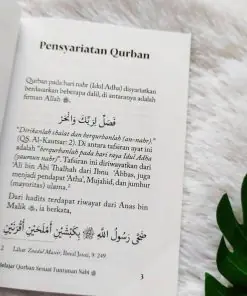 Pensyariatan Qurban
Qurban pada hari nahr (Idul Adha) disyariatkan
berdasarkan beberapa dalil, di antaranya adalah
firman Allah ﷻ,
فَصَلِّ لِرَبِّكَ وَانْحَرْ
"Dirikanlah shalat dan berqurbanlah (an-nahr)."
(QS. Al-Kautsar: 2). Di antara tafsiran ayat ini
adalah "berqurbanlah pada hari raya Idul Adha
(yaumun nahr)". Tafsiran ini diriwayatkan dari
'Ali bin Abi Thalhah dari Ibnu 'Abbas, juga
menjadi pendapat 'Atha', Mujahid, dan jumhur
(mayoritas) ulama.²
Dari hadits terdapat riwayat dari Anas bin
Malik ؓ, is berkata,
ضَحَّى رَسُولُ اللَّهِ ﷺ بِكَبْشَيْنِ أَمْلَحَيْنِ أَقْرَنَيْنِ
2 Lihat Zaadul Masiir, Ibnul Jauzi, 9: 249
Belajar Qurban Sesuai Tuntunan Nabi ﷺ 3